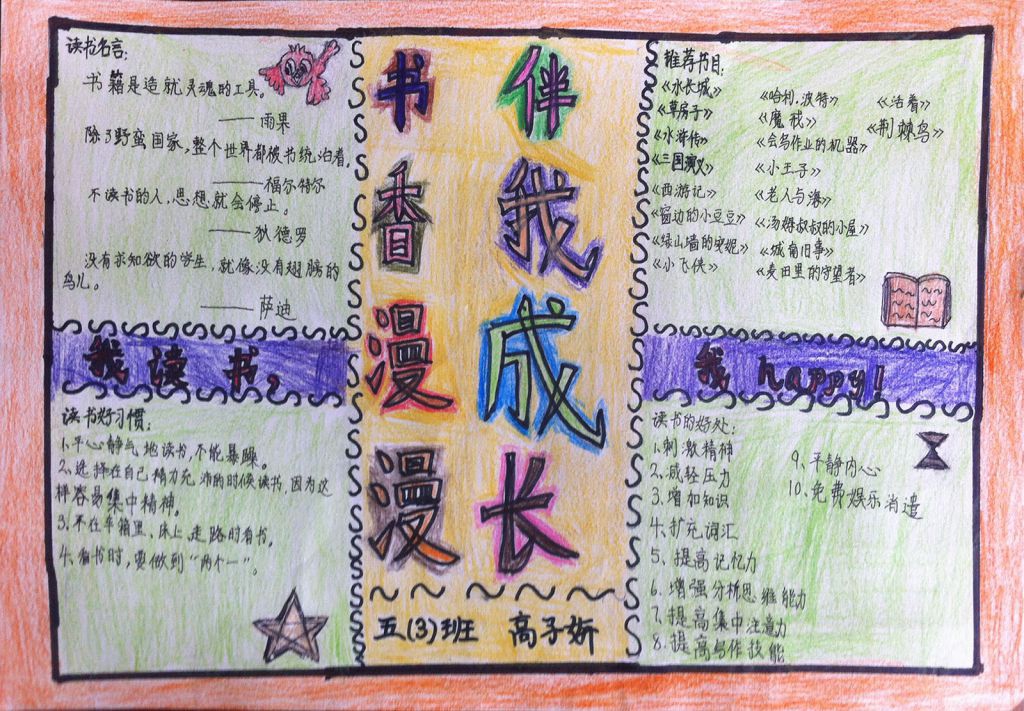 读书名言:
书籍是造就灵魂的工具。
——雨果
除了野蛮国家,整个世界都被书统治着。
——福尔特尔
不读书的人,思想就会停止。
——狄德罗
没有求知欲的学生,就像没有翅膀的
鸟儿。
——萨迪
我读书,
读书好习惯:
1、平心静气地读书,不能暴躁。
2、选择在自己精力充沛的时候读书,因为这
样容易集中精神。
3、不在车箱里、床上、走路时看书。
4、看书时,要做到“两个一”。
书香漫漫
伴我成长
五(3)班 高子娇
推荐书目:
《水长城》
《草房子》
《水浒传》
《三国演义》
《西游记》
《窗边的小豆豆》
《绿山墙的安妮》
《小飞侠》
《哈利.波特》
《魔戒》
《会写作业的机器》
《小王子》
《老人与海》
《汤姆叔叔的小屋》
《城南旧事》
《麦田里的守望者》
《活着》
《荆棘鸟》
我 happy!
读书的好处:
1、刺激精神
2、减轻压力
3、增加知识
4、扩充词汇
5、提高记忆力
6、增强分析思维能力
7、提高集中注意力
8、提高写作技能
9、平静内心
10、免费娱乐消遣